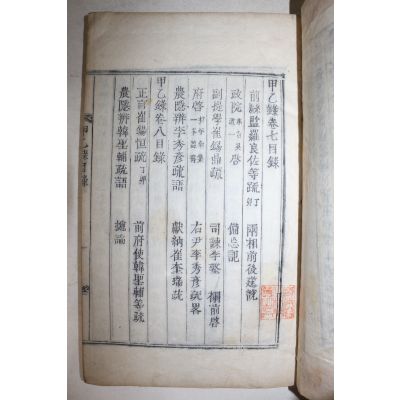 甲乙錄卷七目錄
前縣監羅良佐等疏 丁卯 兩相前後遞疏
政院 啓 備忘記
副提學崔錫鼎疏 司諫李 榻前啓
府啓 右尹李秀彦疏畧
農隱辨李秀彦疏語 獻納崔奎瑞疏
甲乙錄卷八目錄
正言崔錫恒疏 丁卯 前府使韓聖輔等疏
農隱辨韓聖輔疏語 摠論
甲乙錄目錄